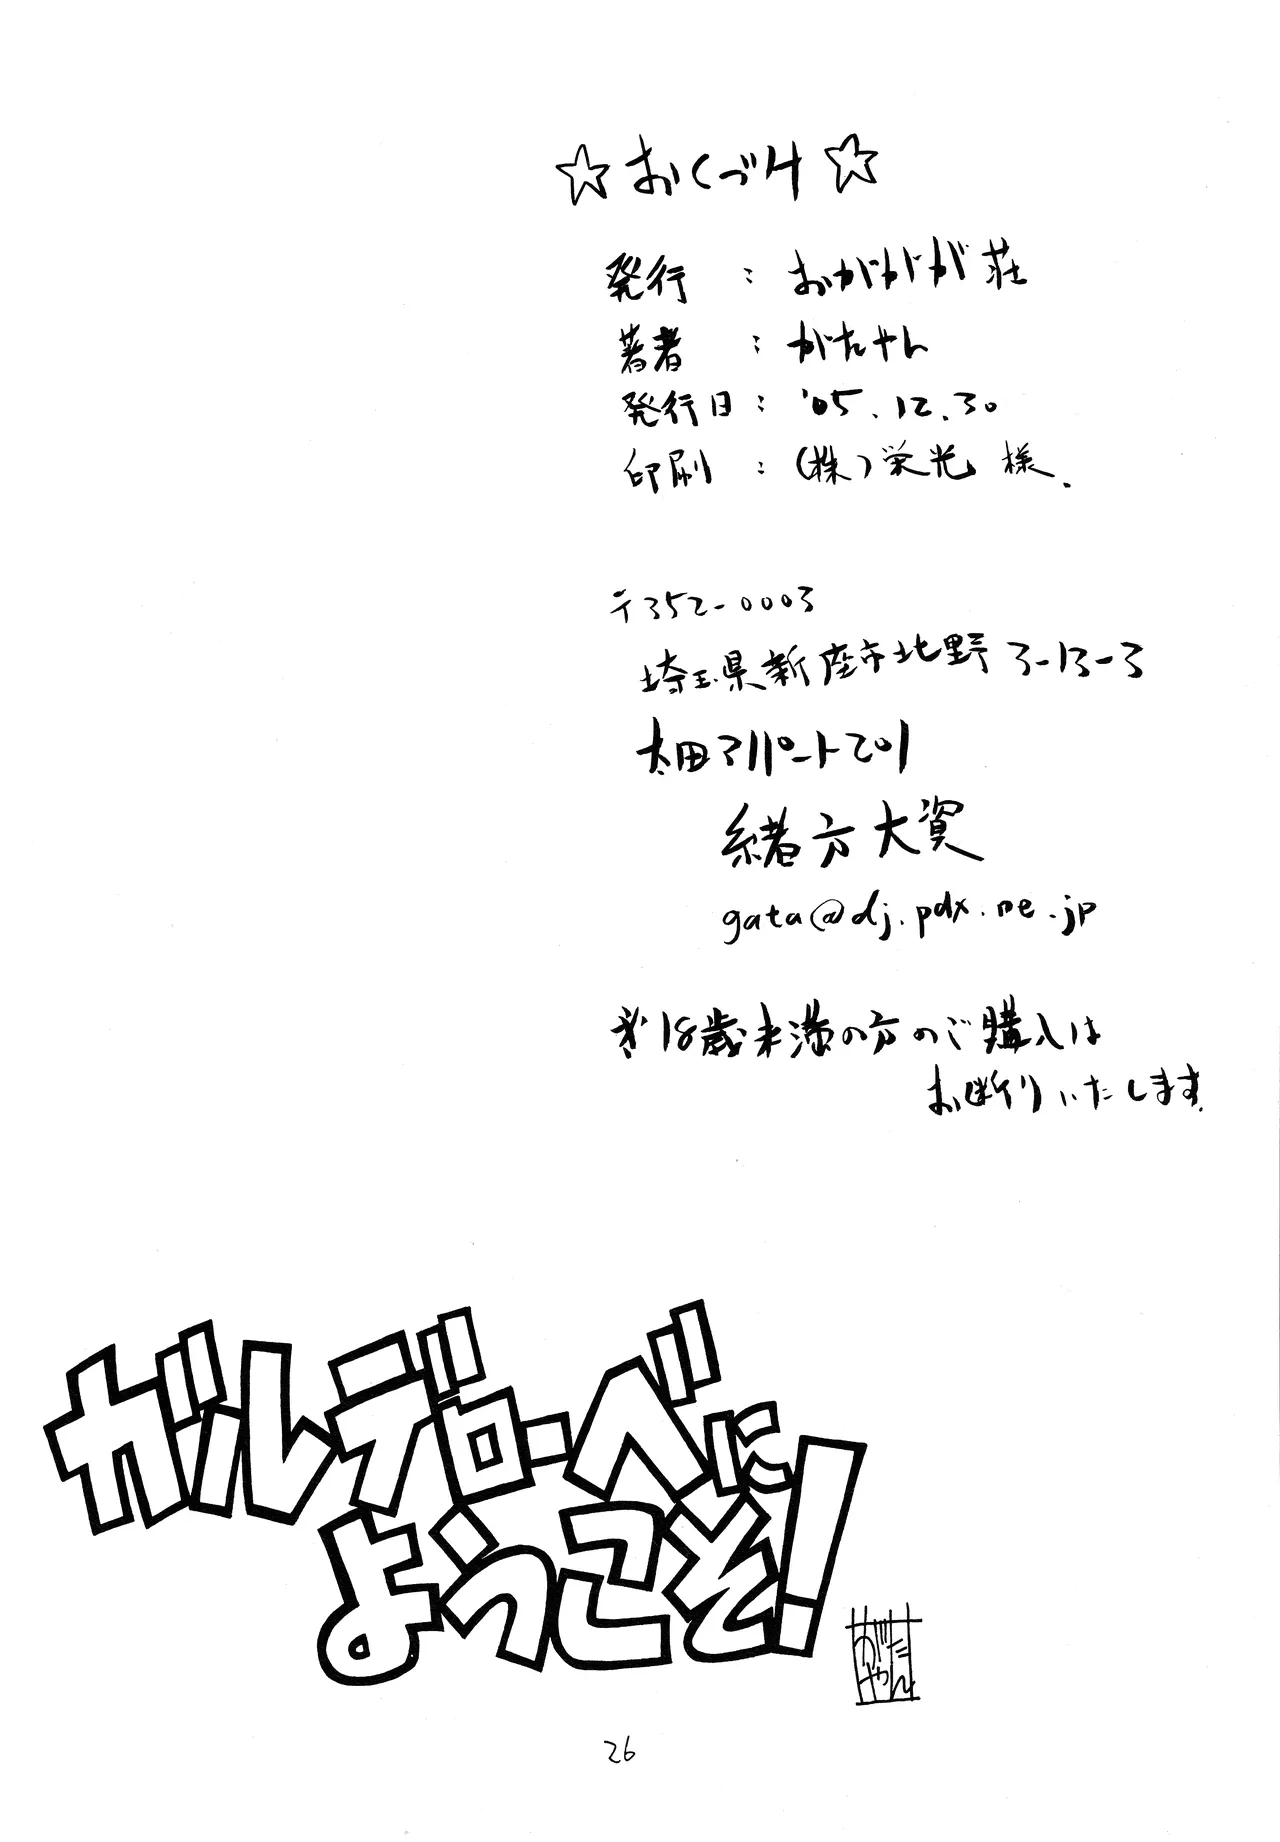 ☆おくづけ☆
発行 : おがががが荘
著者 : がたやん
発行日 : '05.12.30
印刷 : (株)栄光 様.
〒352-0003
埼玉県新座市北野3-13-3
太田アパート201
緒方大資
gata@dj.pdx.ne.jp
※18歳未満の方のご購入は
お断りいたします.
ガルデローベに
ようこそ!
がたやん
26